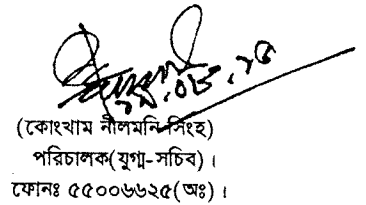 (কোংখাম নীলমনি সিংহ)
পরিচালক(যুগ্ম-সচিব)।
ফোনঃ ৫৫০০৬৬২৫(অঃ)।